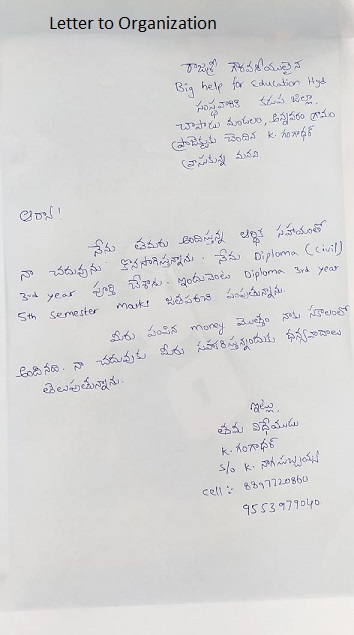 Letter to Organization
రాజశ్రీ గౌరవనీయులైన
Big help for Education Hyd
సంస్థవారికి కడప జిల్లా,
చాపాడు మండలం, అన్నవరం గ్రామం
చెందిన K. గంగాధర్
వ్రాసుకున్న మనవి
ఆర్యా!
నేను తమరు అందిస్తున్న ఆర్థిక సహాయంతో
నా చదువును కొనసాగిస్తున్నాను. నేను Diploma (civil)
3rd year పూర్తి చేశాను. ఇందువెంట Diploma 3rd year
5th semester marks జతపరిచి పంపుతున్నాను.
మీరు పంపిన money మొత్తం నాకు సకాలంలో
అందినది. నా చదువుకు మీరు సహకరిస్తున్నందుకు ధన్యవాదాలు
తెలుపుతున్నాను.
ఇట్లు,
తమ విధేయుడు
K. గంగాధర్
S/o K. నాగసుబ్బయ్య
Cell :- 8897720860
9553979040